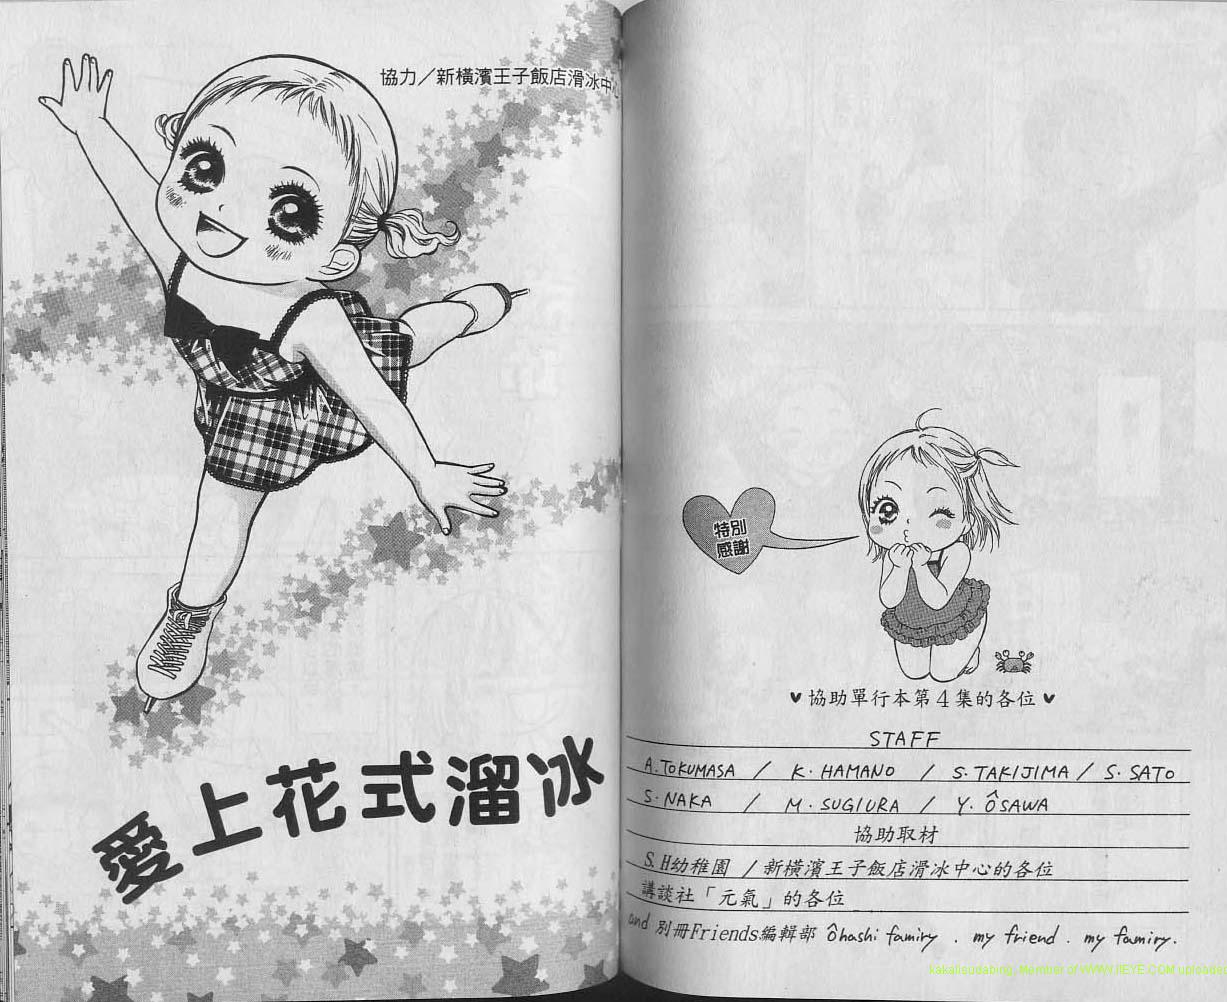 協力／新橫濱王子飯店滑冰中心
愛上花式溜冰
特別
感謝
♥協助單行本第4集的各位♥
STAFF
A.TOKUMASA / K. HAMANO / S. TAKIJIMA / S. SATO
S. NAKA / M. SUGIURA / Y. ÔSAWA
協助取材
S.H幼稚園 / 新橫濱王子飯店滑冰中心的各位
講談社「元氣」的各位
and 別冊Friends編輯部 ôhashi famiry . my friend . my famiry.
kakalisudabing, Member of WWW.IIEYE.COM uploaded